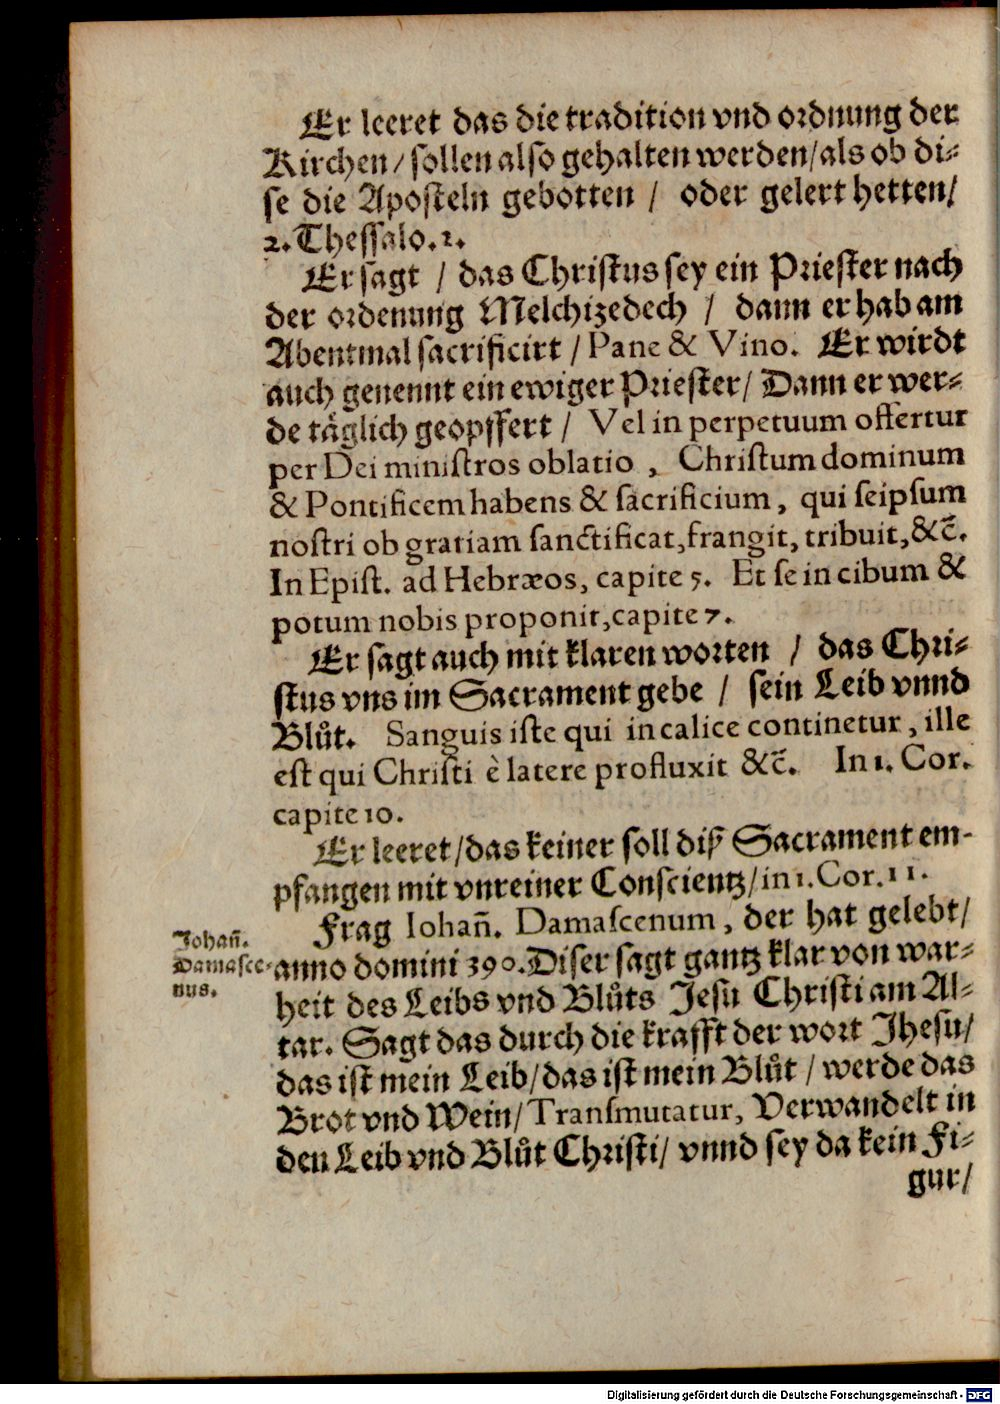 Er leeret das die tradition vnd ordnung der
Kirchen / sollen also gehalten werden / als ob di⸗
se die Aposteln gebotten / oder gelert hetten /
2. Thessalo. 2.
Er sagt / das Christus sey ein Priester nach
der ordenung Melchizedech / dann er hab am
Abentmal sacrificirt / Pane & Vino. Er wirdt
auch genennt ein ewiger Priester / Dann er wer⸗
de täglich geopffert / Vel in perpetuum offertur
per Dei ministros oblatio, Christum dominum
& Pontificem habens & sacrificium, qui seipsum
nostri ob gratiam sanctificat, frangit, tribuit, &c̄.
In Epist. ad Hebræos, capite 5. Et se in cibum &
potum nobis proponit, capite 7.
Er sagt auch mit klaren worten / das Chri⸗
stus vns im Sacrament gebe / sein Leib vnnd
Blůt. Sanguis iste qui in calice continetur, ille
est qui Christi è latere profluxit &c̄. In 1. Cor.
capite 10.
Er leeret / das keiner soll diß Sacrament em-
pfangen mit vnreiner Conscientz / in 1. Cor. 11.
Frag Iohañ. Damascenum, der hat gelebt /
anno domini 390. Diser sagt gantz klar von war⸗
heit des Leibs vnd Blůts Jesu Christi am Al⸗
tar. Sagt das durch die krafft der wort Jhesu /
das ist mein Leib / das ist mein Blůt / werde das
Brot vnd Wein / Transmutatur, Verwandelt in
den Leib vnd Blůt Christi / vnnd sey da kein Fi⸗
gur /
Johañ.
Damasce⸗
nus.
Digitalisierung gefördert durch die Deutsche Forschungsgemeinschaft - DFG